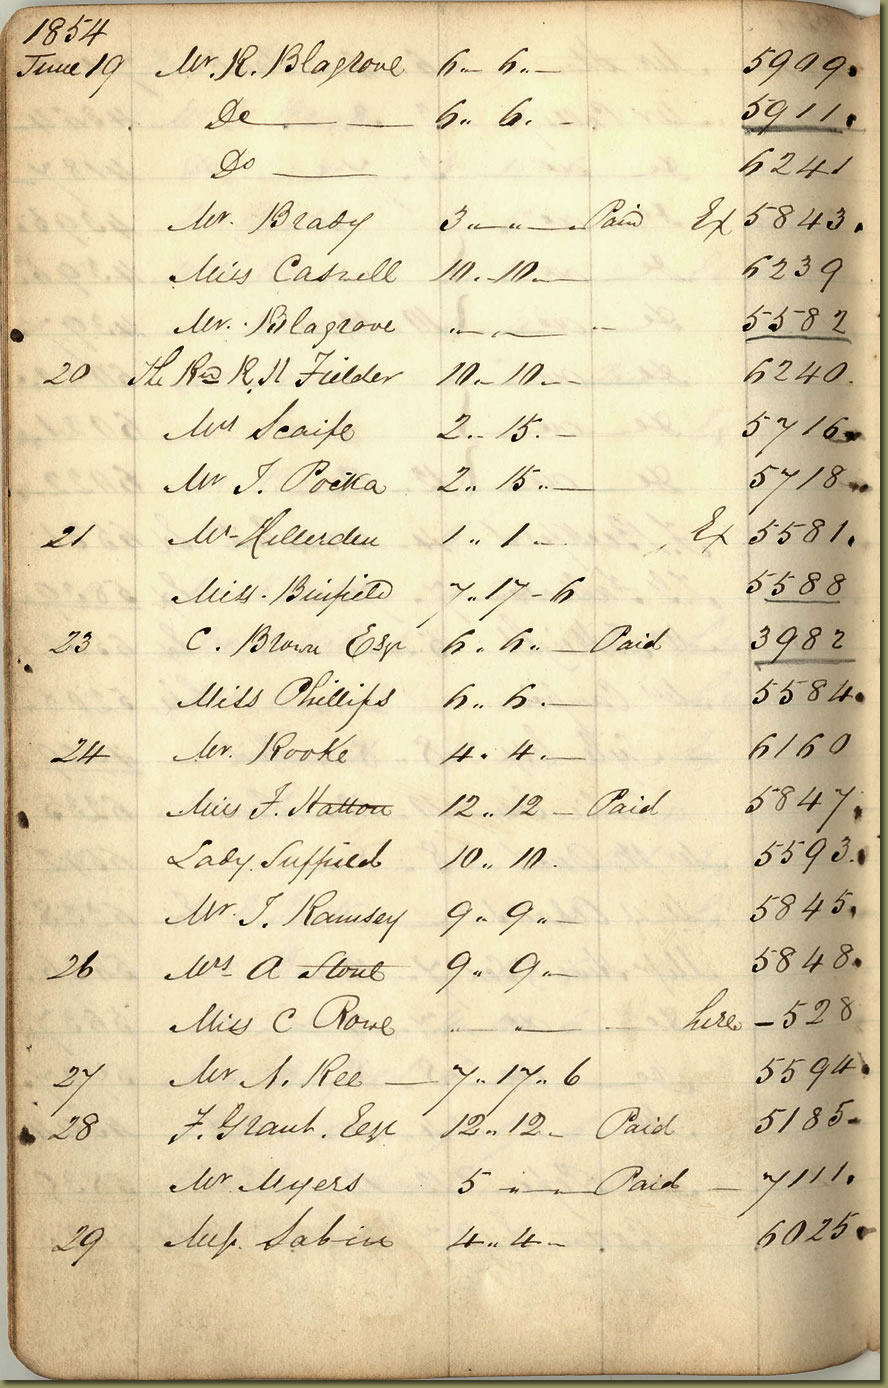 1854
June 19 Mr. R. Blagrove 6.. 6.. — 5909.
Do — 6.. 6. - 5911.
Do — 6241
Mr. Brady 3.. .. — Paid Ex 5843.
Miss Caswell 10.. 10.. — 6239
Mr. Blagrove .. .. — 5582
20 The Revd R. H Fielder 10.. 10.. — 6240.
Mrs Scaife 2.. 15. - 5716.
Mr J. 2.. 15.. — 5718.
21 Mr 1.. 1.. — Ex 5581.
Miss. Binfield 7.. 17 - 6 5588
23 C. Brown Esqr 6.. 6.. — Paid 3982
Miss Phillips 6.. 6. — 5584.
24 Mr. Rooke 4. 4. — 6160
Miss F. Hatton 12.. 12 - Paid 5847.
Lady Suffield 10.. 10. 5593.
Mr. J. Ramsey 9.. 9.. — 5845.
26 Mrs A Stone 9.. 9.. — 5848.
Miss C Rowe .. .. — here - 528
27 Mr A. Kee — 7.. 17.. 6 5594.
28 F. Grant. Esqr 12.. 12.. - Paid 5185-
Mr Myers 5 .. .. — Paid — 7111.
29 Miss. Sabine 4.. 4.. - 6025.